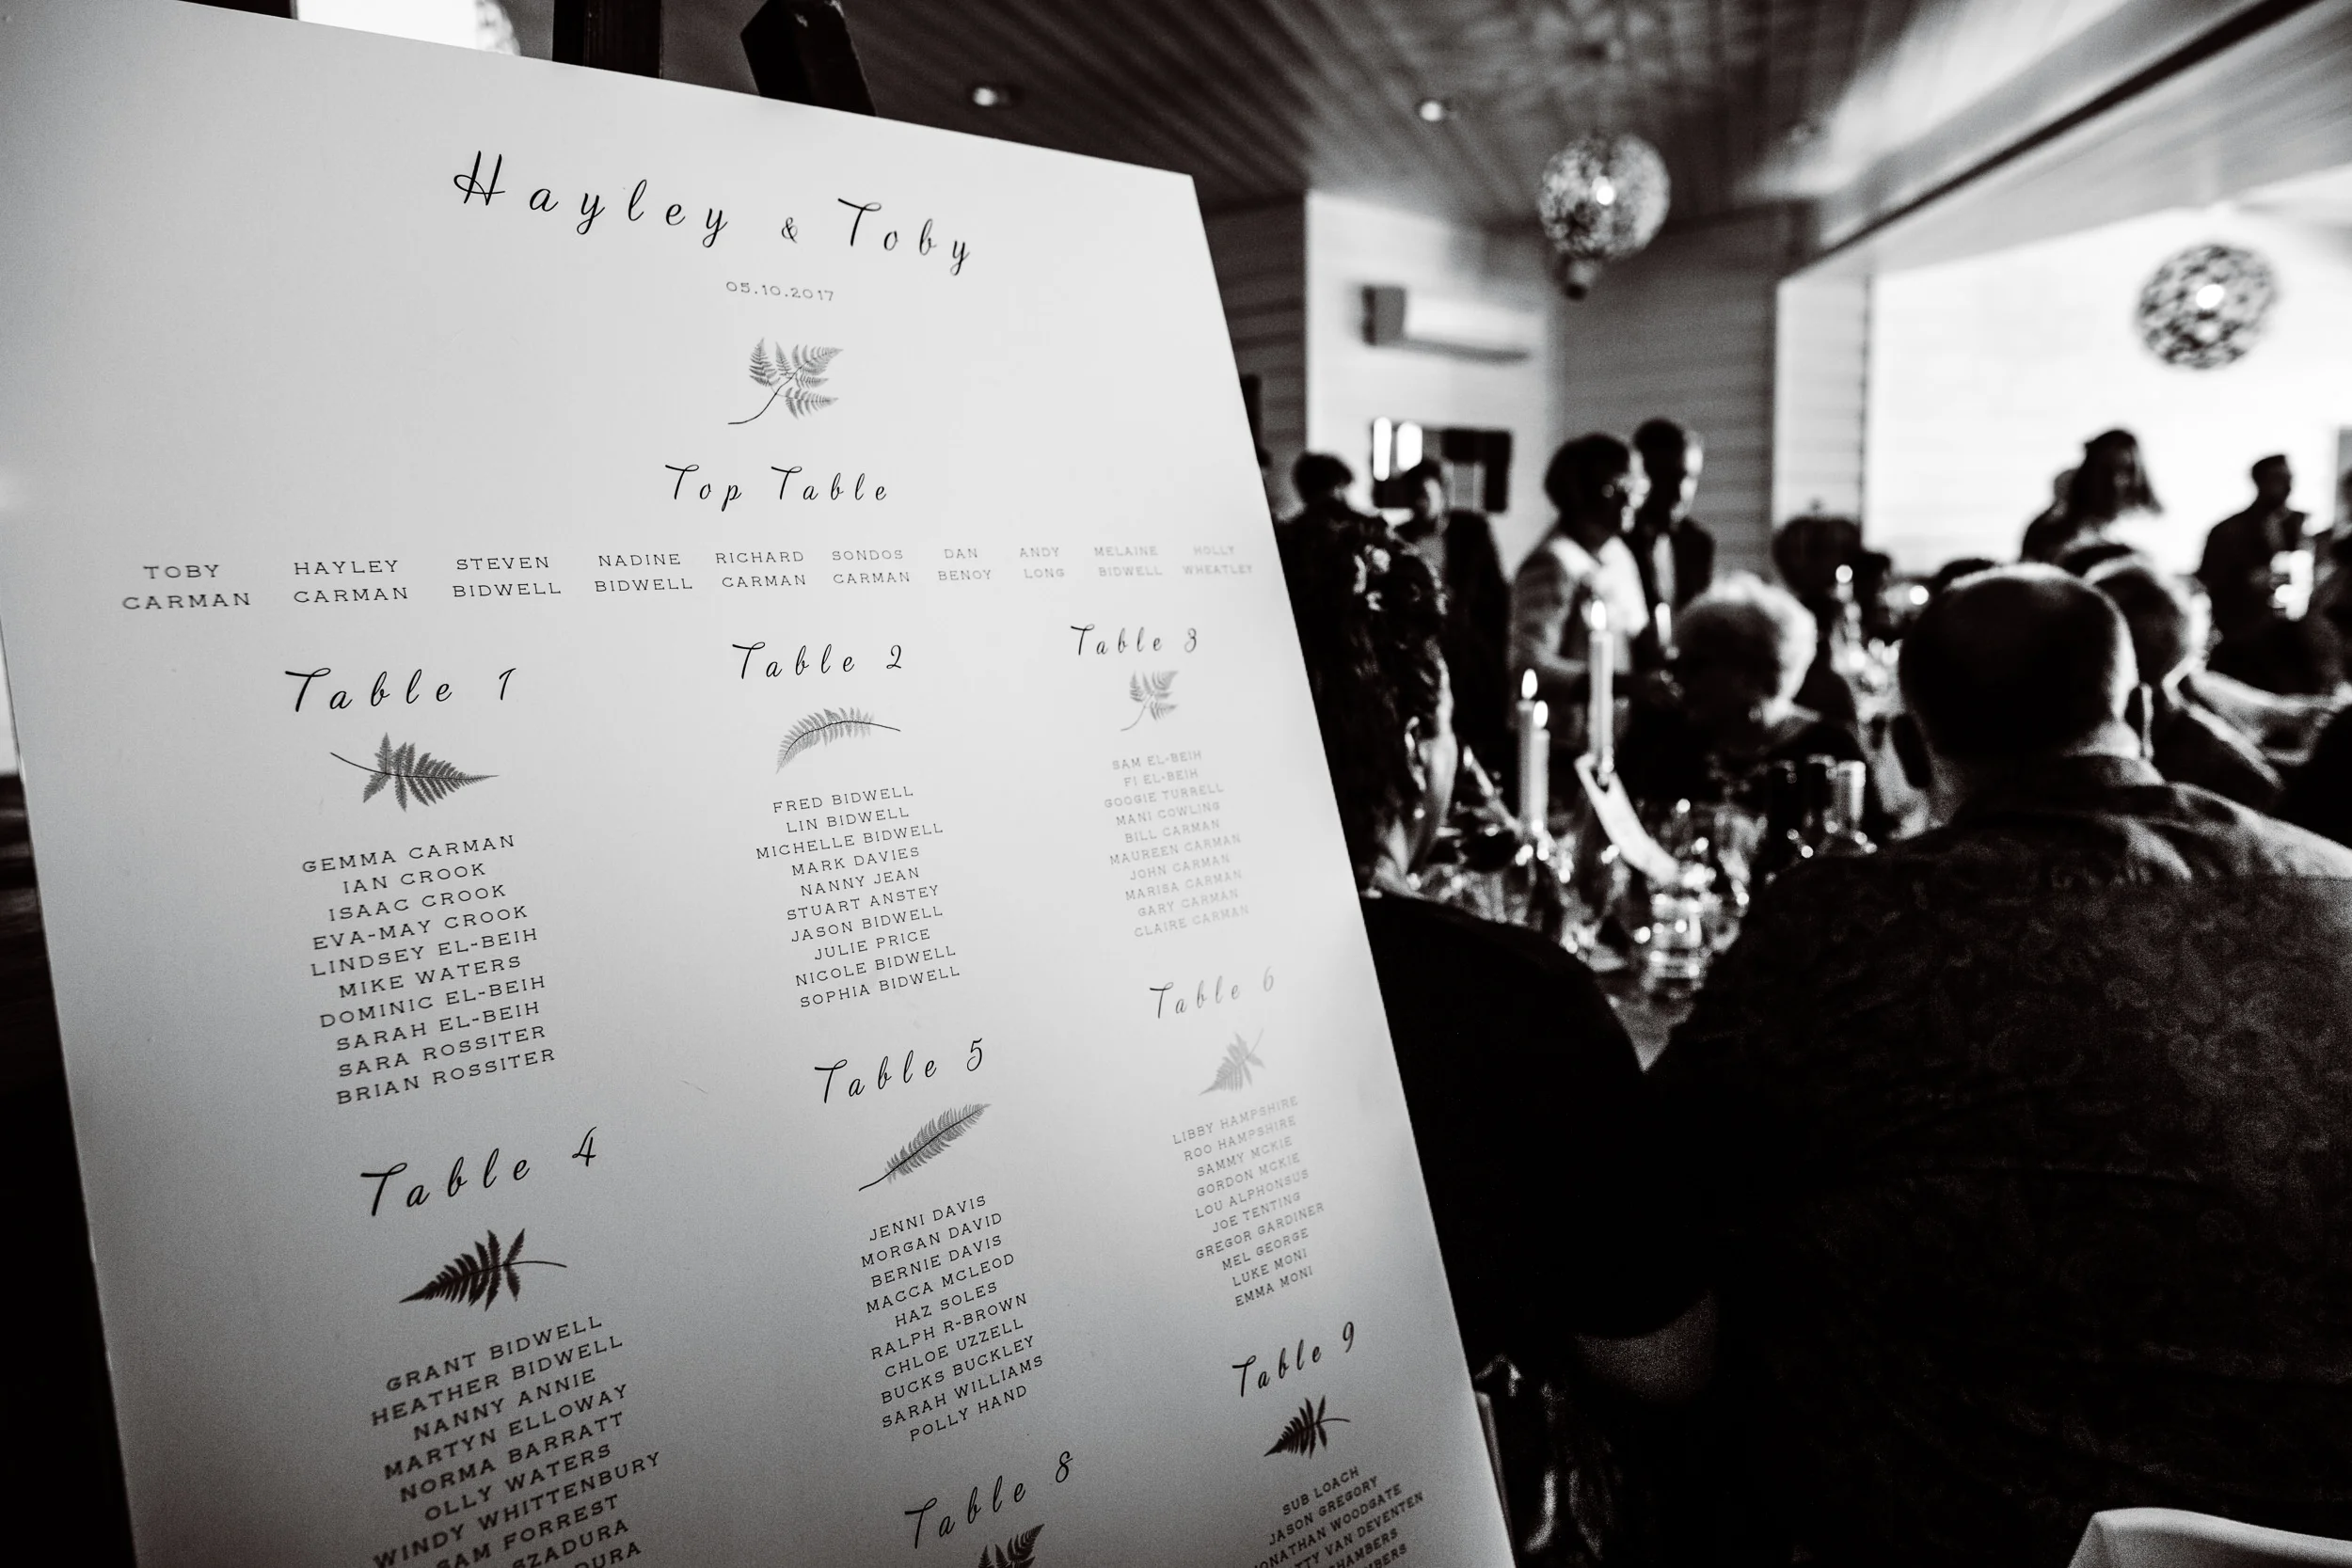 Hayley & Toby
05.10.2017
Top Table
TOBY CARMAN
HAYLEY CARMAN
STEVEN BIDWELL
NADINE BIDWELL
RICHARD CARMAN
SONDOS CARMAN
DAN BENOY
ANDY LONG
MELAINE BIDWELL
HOLLY WHEATLEY
Table 1
GEMMA CARMAN
IAN CROOK
ISAAC CROOK
EVA-MAY CROOK
LINDSEY EL-BEIH
MIKE WATERS
DOMINIC EL-BEIH
SARAH EL-BEIH
SARA ROSSITER
BRIAN ROSSITER
Table 2
FRED BIDWELL
LIN BIDWELL
MICHELLE BIDWELL
MARK DAVIES
NANNY JEAN
STUART ANSTEY
JASON BIDWELL
JULIE PRICE
NICOLE BIDWELL
SOPHIA BIDWELL
Table 3
SAM EL-BEIH
FI EL-BEIH
GOOGIE TURRELL
MANI COWLING
BILL CARMAN
MAUREEN CARMAN
JOHN CARMAN
MARISA CARMAN
GARY CARMAN
CLAIRE CARMAN
Table 4
GRANT BIDWELL
HEATHER BIDWELL
NANNY ANNIE
MARTYN ELLOWAY
NORMA BARRATT
OLLY WATERS
WINDY WHITTENBURY
SAM FORREST
Table 5
JENNI DAVIS
MORGAN DAVID
BERNIE DAVIS
MACCA MCLEOD
HAZ SOLES
RALPH R-BROWN
CHLOE UZZELL
BUCKS BUCKLEY
SARAH WILLIAMS
POLLY HAND
Table 6
LIBBY HAMPSHIRE
ROO HAMPSHIRE
SAMMY MCKIE
GORDON MCKIE
LOU ALPHONSUS
JOE TENTING
GREGOR GARDINER
MEL GEORGE
LUKE MONI
EMMA MONI
Table 8
Table 9
SUB LOACH
JASON GREGORY
JONATHAN WOODGATE
VAN DEVENTEN